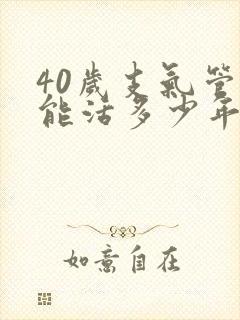 40岁支氣管
能活多少年
如意自在